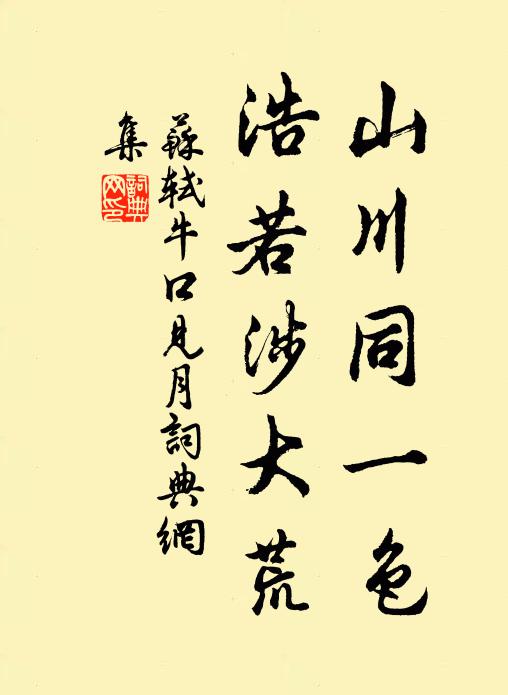 山川同一色
浩若涉大荒
蘇軾牛口見月詞典網
集
詞典網印